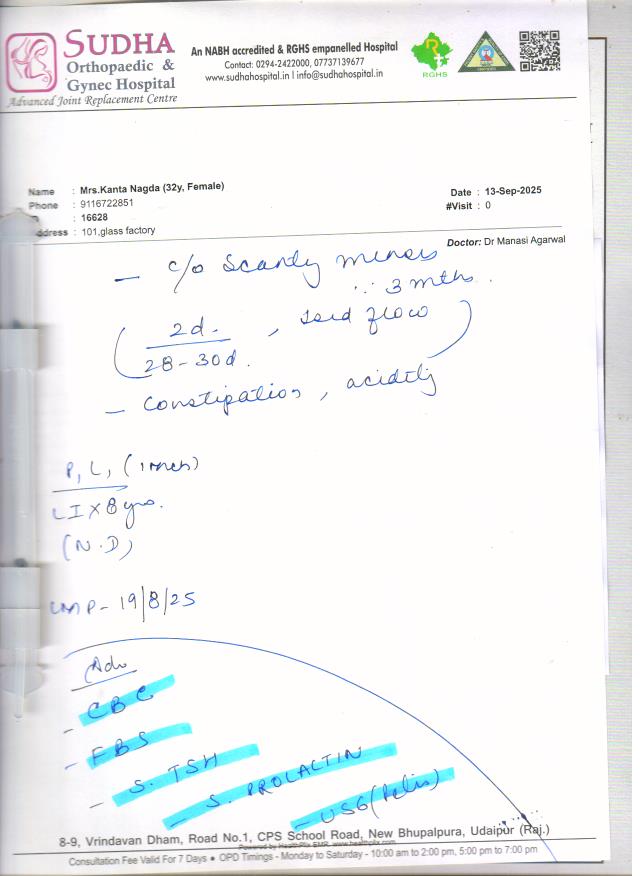 SUDHA
Orthopaedic &
Gynec Hospital
Advanced Joint Replacement Centre
An NABH accredited & RGHS empanelled Hospital
Contact: 0294-2422000, 07737139677
www.sudhahospital.in | info@sudhahospital.in
RGHS
Name : Mrs.Kanta Nagda (32y, Female)
Date : 13-Sep-2025
Phone : 9116722851
#Visit : 0
: 16628
ddress : 101,glass factory
Doctor: Dr Manasi Agarwal
- c/o Scanty menses
∵ 3 mths.
( 2d. / 28-30d. , flow )
- constipation, acidity
P1 L1
LI x 8 yrs.
(N.D)
LMP - 19/8/25
Adv
- CBC
- FBS
- S. TSH
- S. PROLACTIN
- USG (Pelvis)
8-9, Vrindavan Dham, Road No.1, CPS School Road, New Bhupalpura, Udaipur (Raj.)
Powered by HealthPlix EMR. www.healthplix.com
Consultation Fee Valid For 7 Days • OPD Timings - Monday to Saturday - 10:00 am to 2:00 pm, 5:00 pm to 7:00 pm